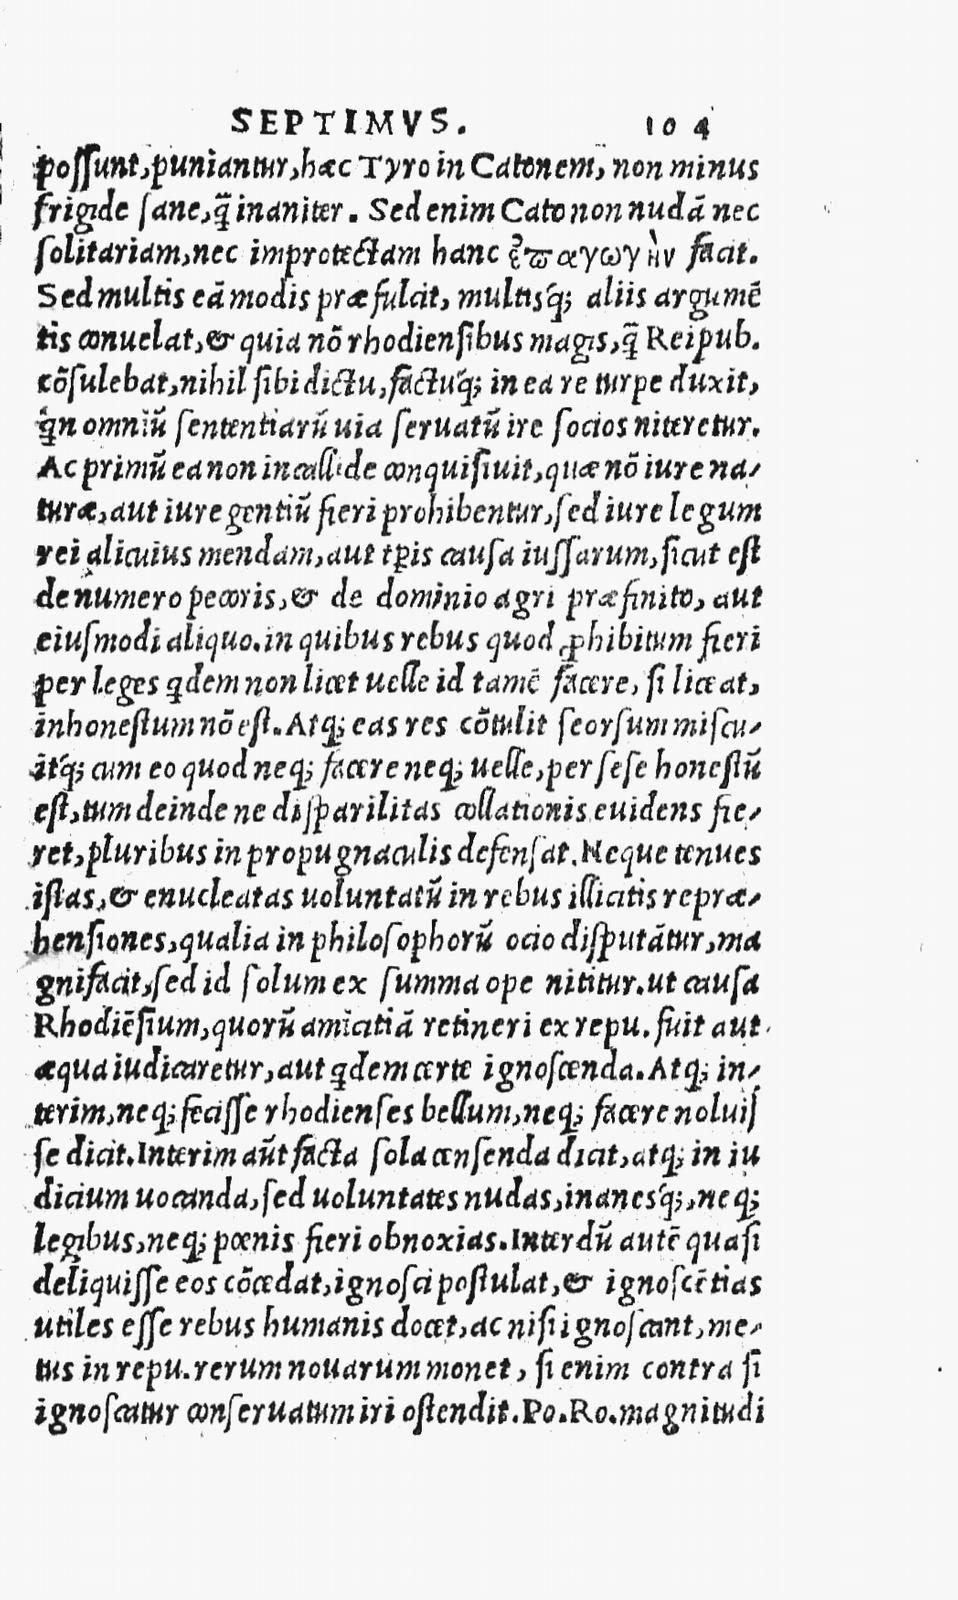 SEPTIMVS. 104
possunt, puniantur, hæc Tyro in Catonem, non minus
frigide sane, q̃ inaniter. Sed enim Cato non nudã nec
solitariam, nec improtectam hanc ἐπαγωγὴν facit.
Sed multis eã modis præfulcit, multisq́; aliis argumẽ
tis conuelat, & quia nõ rhodiensibus magis, q̃ Reipub.
cõsulebat, nihil sibi dictu, factuq́; in ea re turpe duxit,
qn omniũ sententiarũ uia seruatũ ire socios niteretur.
Ac primũ ea non incallide conquisiuit, quæ nõ iure na-
turæ, aut iure gentiũ fieri prohibentur, sed iure legum
rei alicuius mendam, aut tꝑis causa iussarum, sicut est
de numero pecoris, & de dominio agri præfinito, aut
eiusmodi aliquo. in quibus rebus quod ꝓhibitum fieri
per leges qdem non licet uelle id tamẽ facere, si liceat,
inhonestum nõ est. Atq; eas res cõtulit seorsum miscu-
itq́; cum eo quod neq; facere neq; uelle, per sese honestũ
est, tum deinde ne disparilitas collationis euidens fie-
ret, pluribus in propugnaculis defensat. Neque tenues
istas, & enucleatas uoluntatũ in rebus illicitis repræ-
hensiones, qualia in philosophorũ ocio disputãtur, ma
gnifacit, sed id solum ex summa ope nititur. ut causa
Rhodiẽsium, quorũ amicitiã retineri ex repu. fuit aut
æqua iudicaretur, aut qdem certe ignoscenda. Atq; in-
terim, neq; fecisse rhodienses bellum, neq; facere noluis
se dicit. Interim aũt facta sola censenda dicit, atq; in iu
dicium uocanda, sed uoluntates nudas, inanesq́;, neq;
legibus, neq; pœnis fieri obnoxias. Interdũ autẽ quasi
deliquisse eos cõcedat, ignosci postulat, & ignoscẽtias
utiles esse rebus humanis docet, ac nisi ignoscant, me-
tus in repu. rerum nouarum monet, si enim contra si
ignoscatur conseruatum iri ostendit. Po. Ro. magnitudi